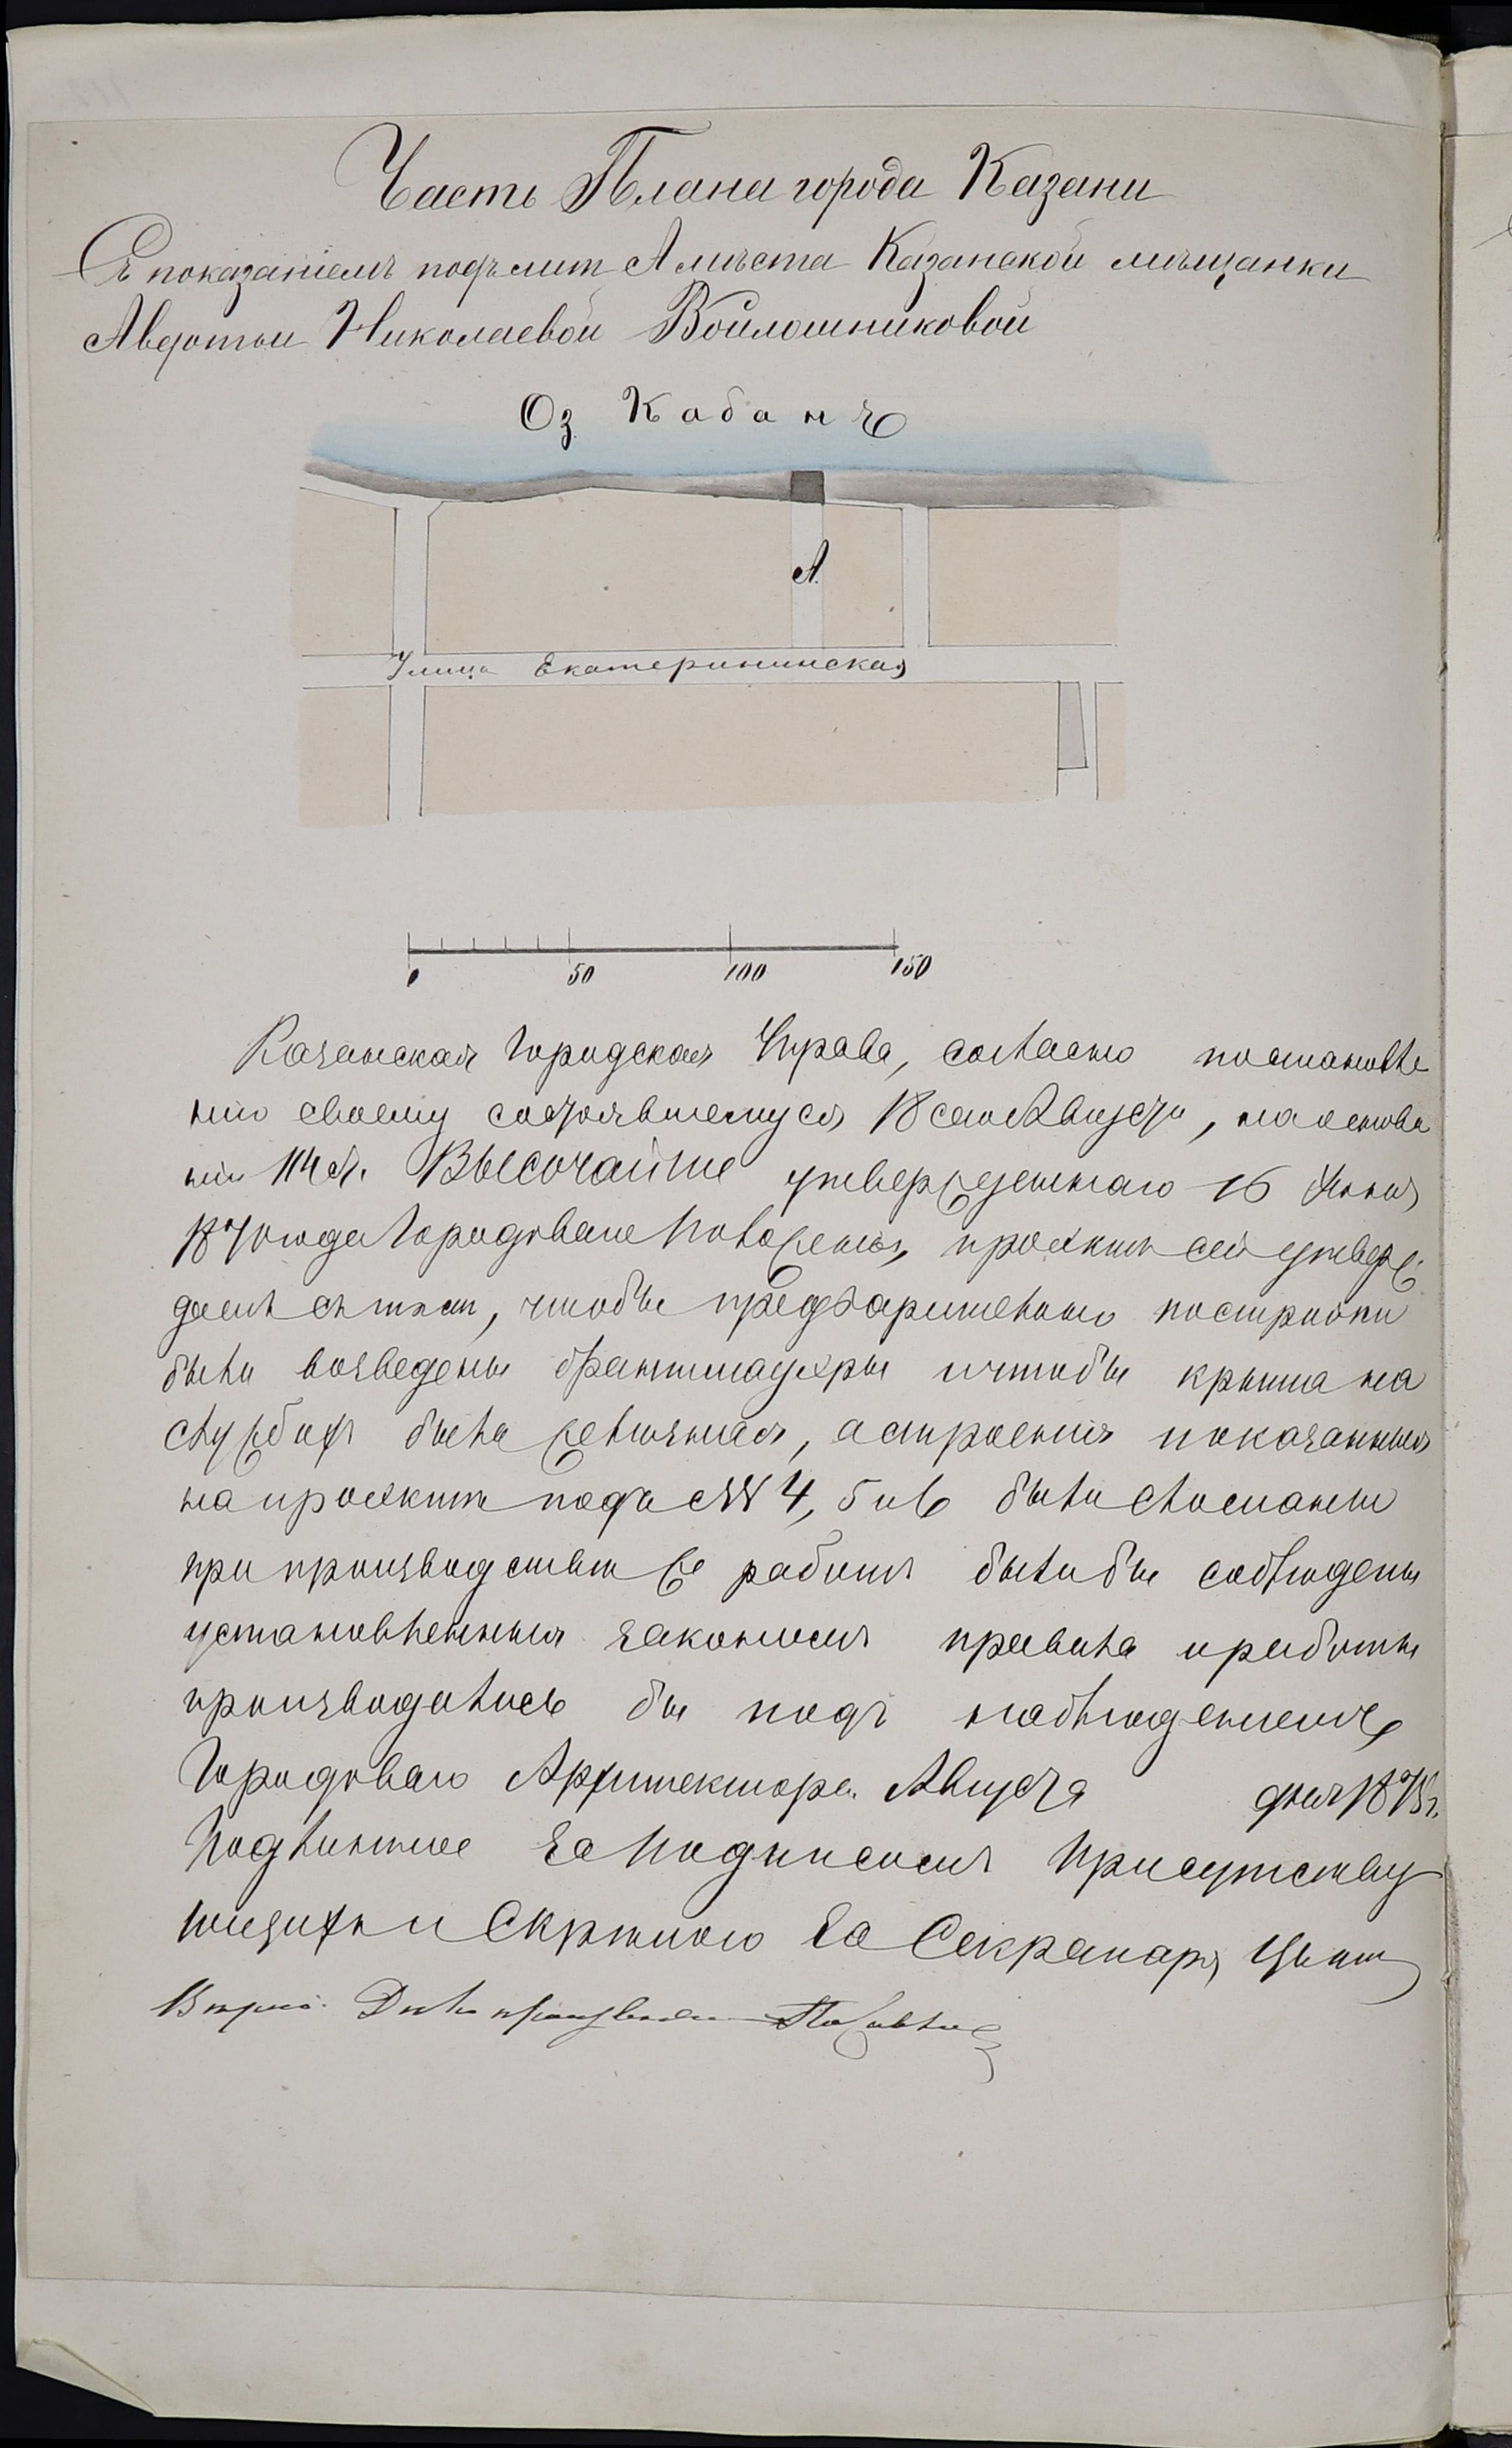 Часть Плана города Казани
Съ показаніемъ подъ лит А мѣста Казанской мѣщанки
Авдотьи Николаевой Войлошниковой
Оз Кабанъ
А.
Улица Екатерининская
0 50 100 150
Казанская Городская Управа, согласно постановле
нію своему состоявшемуся 18 сего Августа, на основа
ніи 114 ст. Высочайше утвержденнаго 16 Іюня
1870 года Городоваго Положенія, проэктъ сей утверж
даетъ съ тѣмъ, чтобы предварительно постройки
были возведены брантмауэры и чтобы крыша на
службахъ была желѣзная, а строенія показанныя
на проэктѣ подъ №№ 4, 5 и 6 были сломаны
при производствѣ же работъ были бы соблюдены
установленныя закономъ правила и работы
производились бы подъ наблюденіемъ
Городоваго Архитектора. Августа дня 1875 г.
Подлинное за подписомъ Присутству
ющихъ и Скрѣпою за Секретаря
Вѣрно: Дѣлопроизводитель